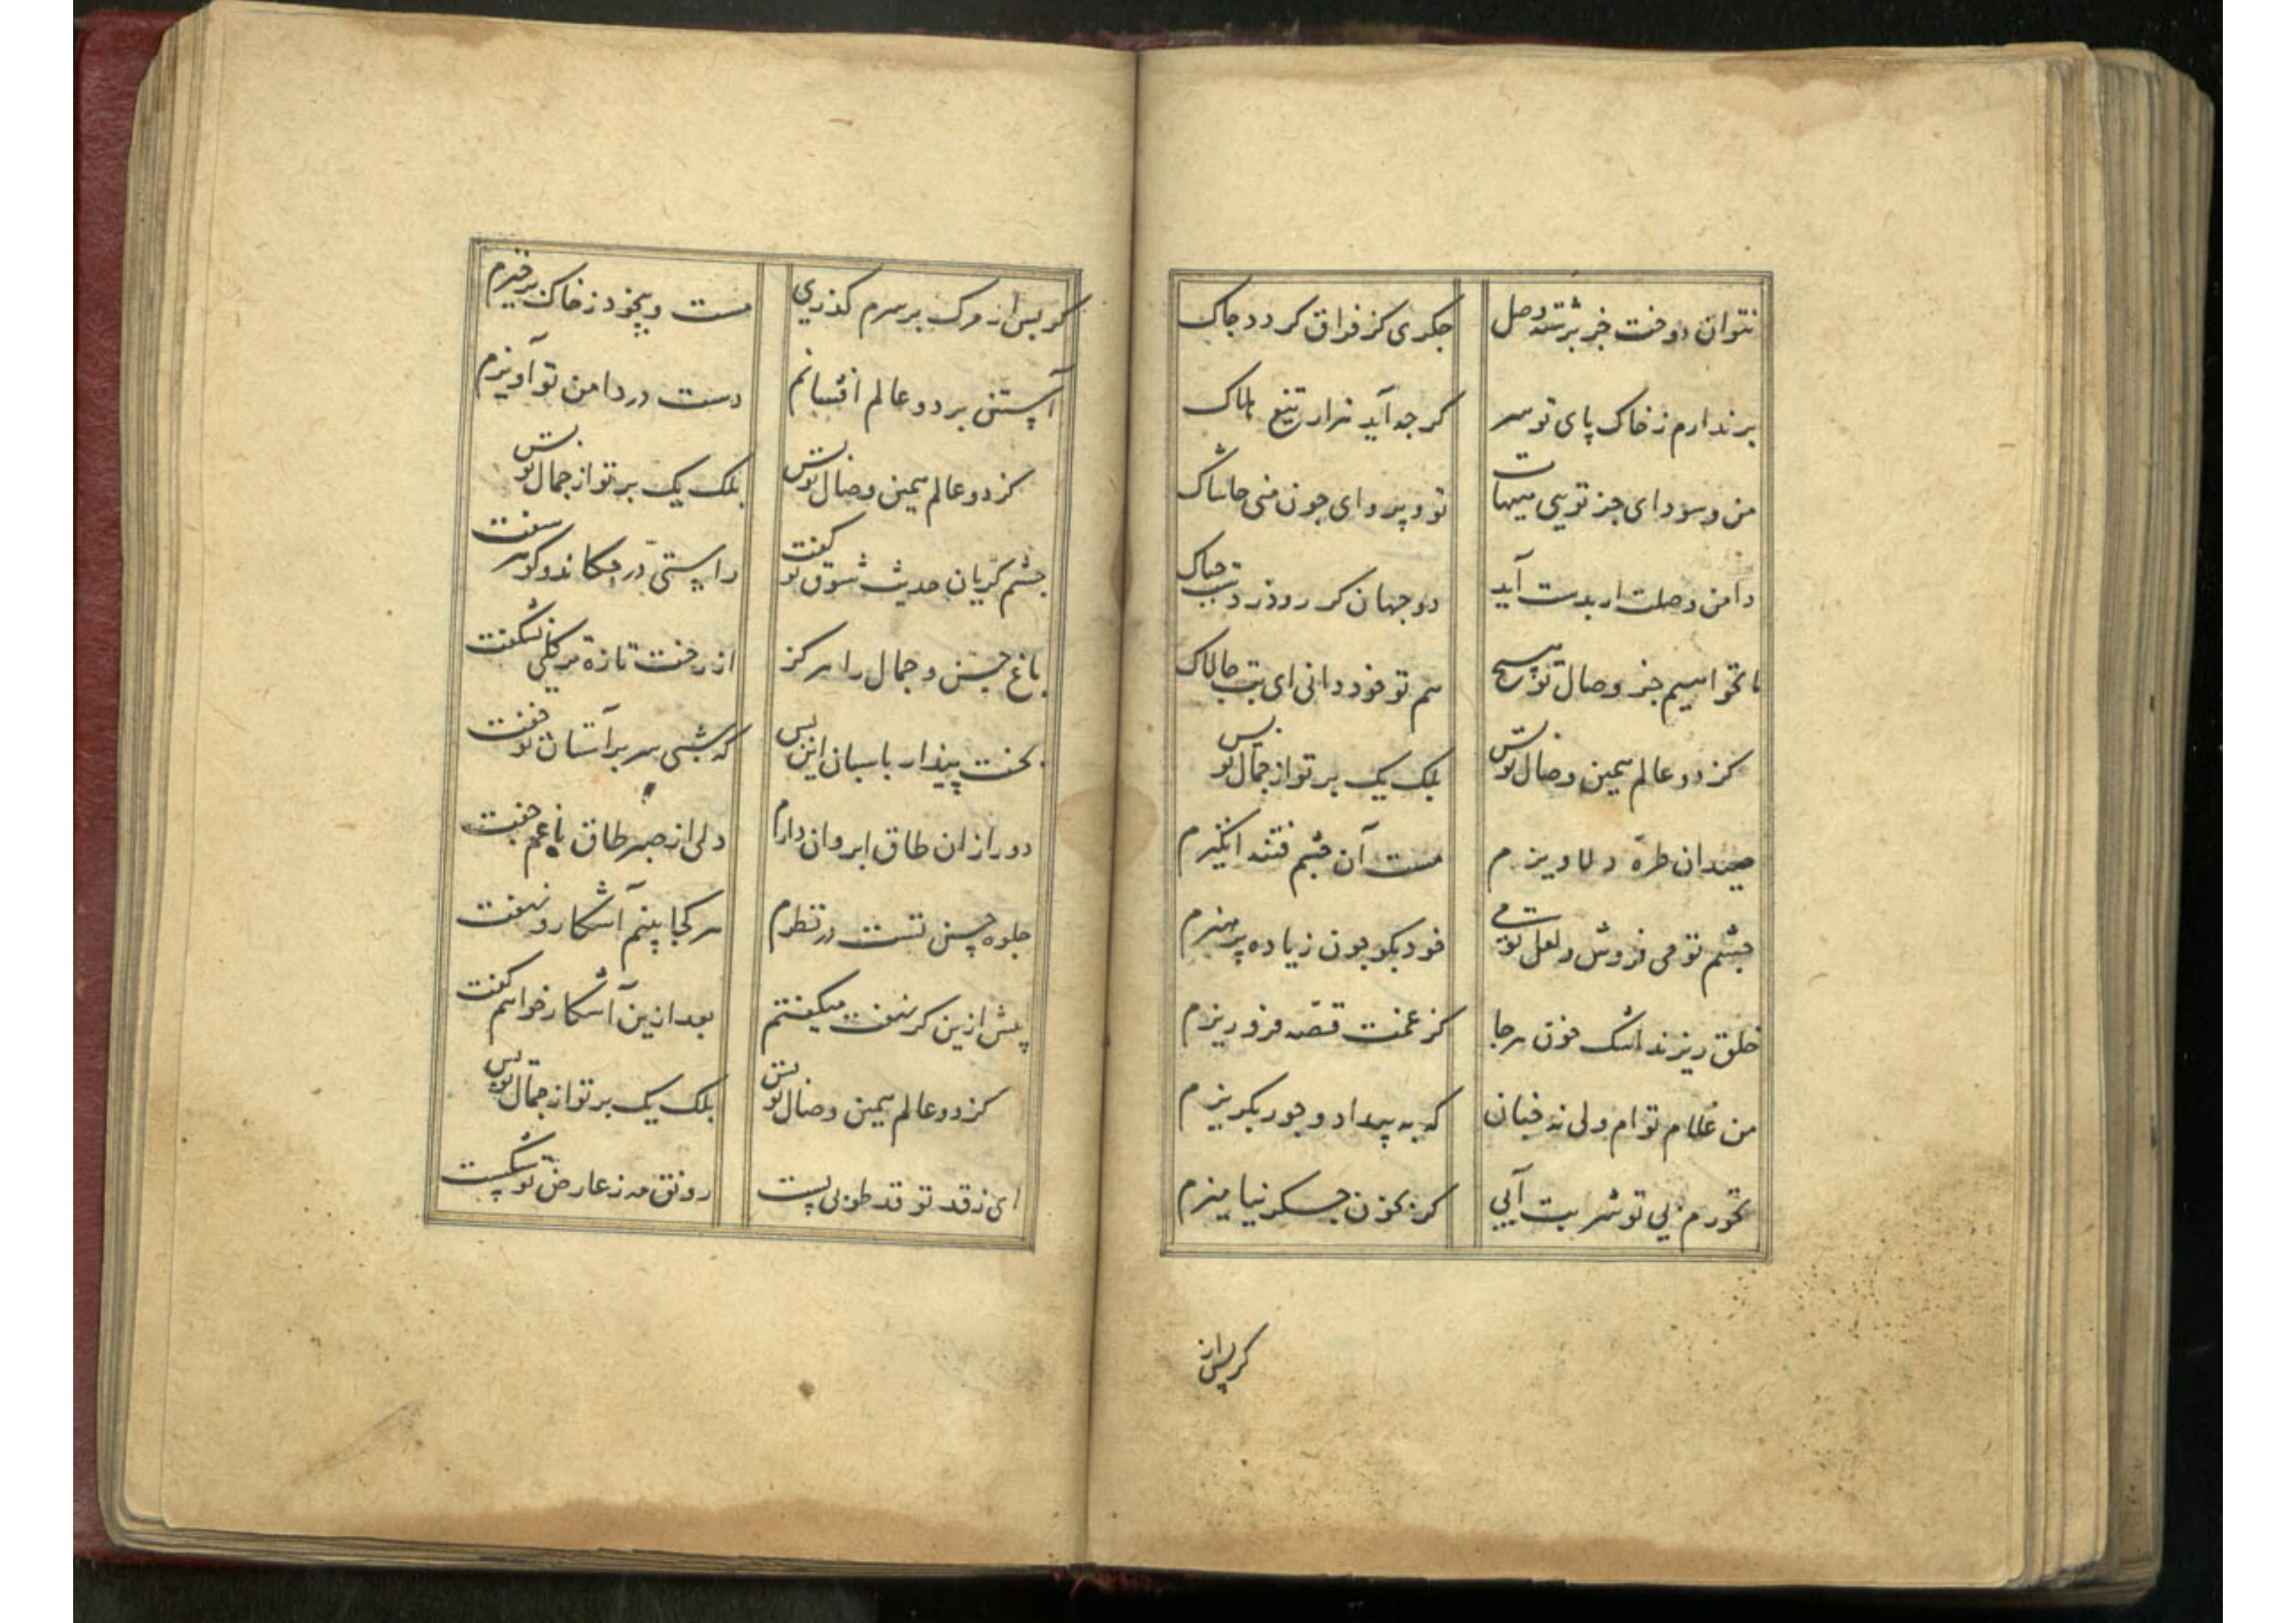 نتوان دوخت جز برشته وصل جکری کز فراق کردد جاک
برندارم ز خاک پای تو سر کر جه آید هزار تیغ هلاک
من و سودای جز تویی هیهات تو و پروای جون منی حاشاک
دامن وصلت ار بدست آید دو جهان کر رود ز دست جه باک
ما نخواهیم جز وصال تو هیچ هم تو خود دانی ای بت جالاک
کز دو عالم همین وصال تو بس بلک یک پرتو از جمال تو بس
صید آن طره دلاویزم مست آن چشم فتنه انکیزم
جشم تو می فروش و لعل تو می خود بکو جون ز باده پرهیزم
خلق ریزند اشک خون هر جا کز غمت قصه فرو ریزم
من غلام توام ولی نه جنان که به بیداد و جور بکریزم
نخورم بی تو شربت آبی کز بخون جکر نیامیزم
کر پس از
کر پس از مرک بر سرم کذری مست و بیخود ز خاک برخیزم
آستین بر دو عالم افشانم دست در دامن تو آویزم
کز دو عالم همین وصال تو بس بلک یک برتو از جمال تو بس
جشم کریان حدیث شوق تو کفت راستی در جکاند و کوهر سفت
باغ حسن و جمال را هرکز از رخت تازه تر کلی نشکفت
بخت بیدار باسبان این بس که شبی سر بر آستان تو خفت
دور ازان طاق ابروان دارم دلی از صبر طاق با غم جفت
جلوه حسن تست در نظرم هر کجا بینم آشکار و نهفت
پیش ازین کر نهفت میکفتم بعد ازین آشکار خواهم کفت
کز دو عالم همین وصال تو بس بلک یک برتو از جمال تو بس
ای ز قد تو قد طوبی پست رونق مه ز عارض تو شکست